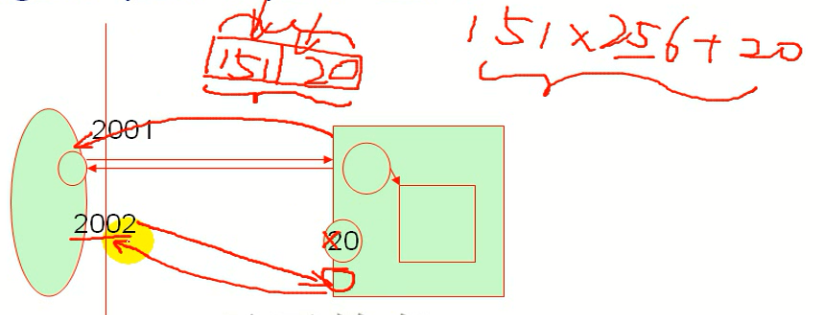 151 20
151×256+20
2001
2002
20